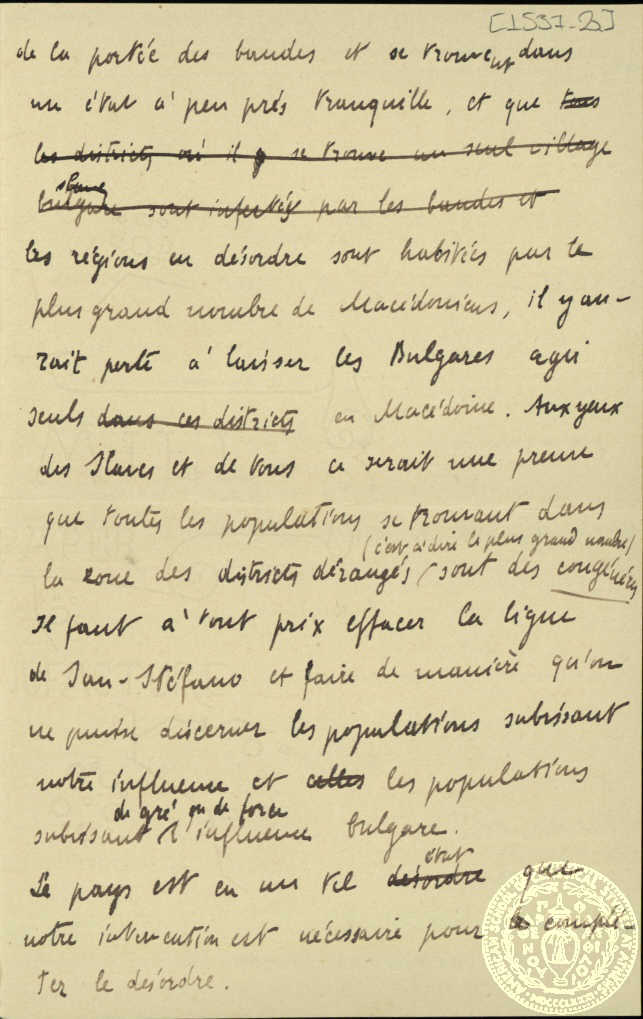 [1537-2]
de la portée des bandes et se trouvent dans
un état à peu prés tranquille, et que tous
les districts où il y se trouve un seul village
slave
bulgare sont infectés par les bandes et
les régions en désordre sont habitées par le
plus grand nombre de Macédoniens, il y au-
rait perte à laisser les Bulgares agir
seuls dans ces districts en Macédoine. Aux yeux
des Slaves et de tous ce serait une preuve
que toutes les populations se trouvant dans
(c'est à dire le plus grand nombre)
la zone des districts dérangés sont des congénères
Il faut à tout prix effacer la ligne
de San-Stéfano et faire de manière qu'on
ne puisse discerner les populations subissant
notre influence et celles les populations
de gré ou de force
subissant l'influence bulgare.
état
Le pays est en un tel désordre que
notre intervention est nécessaire pour complé-
ter le désordre.